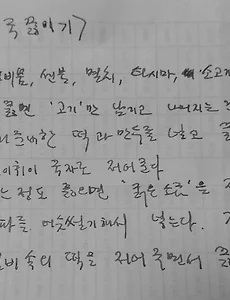 국 끓이기>
비풀, 선불, 멸치, 다시마, 소고기
끓면 '고기'만 남기고 나머지는
준비한 떡과 만두를 넣고
국자로 저어준다
정도 끓으면 '굵은 소금'을
파를 어슷썰기해서 넣는다.
솥의 떡을 저어 주면서